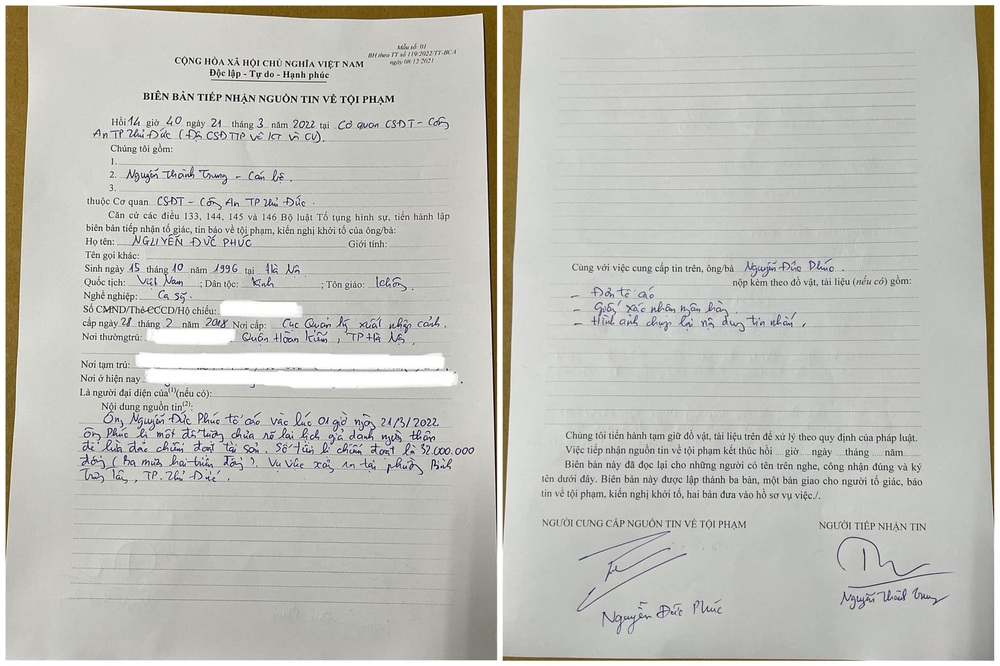 Mẫu số: 01
BH theo TT số 119/2022/TT-BCA
ngày 08/12/2021
CỘNG HÒA XÃ HỘI CHỦ NGHĨA VIỆT NAM
Độc lập - Tự do - Hạnh phúc
BIÊN BẢN TIẾP NHẬN NGUỒN TIN VỀ TỘI PHẠM
Hồi 14 giờ 40 ngày 21 tháng 3 năm 2022 tại Cơ quan CSĐT - Công
An TP Thủ Đức (Đội CSĐTTP về KT và CV).
Chúng tôi gồm:
1.
2. Nguyễn Thành Trung - Cán bộ.
3.
thuộc Cơ quan CSĐT - Công An TP Thủ Đức.
Căn cứ các điều 133, 144, 145 và 146 Bộ luật Tố tụng hình sự, tiến hành lập
biên bản tiếp nhận tố giác, tin báo về tội phạm, kiến nghị khởi tố của ông/bà:
Họ tên: NGUYỄN ĐỨC PHÚC Giới tính:
Tên gọi khác:
Sinh ngày 15 tháng 10 năm 1996 tại Hà Nội
Quốc tịch: Việt Nam ; Dân tộc: Kinh ; Tôn giáo: Không.
Nghề nghiệp: Ca sỹ.
Số CMND/Thẻ CCCD/Hộ chiếu:
cấp ngày 28 tháng 2 năm 2018 Nơi cấp: Cục Quản lý xuất nhập cảnh.
Nơi thường trú: Quận Hoàn Kiếm, TP Hà Nội.
Nơi tạm trú:
Nơi ở hiện nay
Là người đại diện của(1)(nếu có):
Nội dung nguồn tin(2):
Ông Nguyễn Đức Phúc tố cáo vào lúc 01 giờ ngày 21/3/2022
ông Phúc bị một đối tượng chưa rõ lai lịch giả danh người thân
để lừa đảo chiếm đoạt tài sản. Số tiền bị chiếm đoạt là 32.000.000
đồng (Ba mươi hai triệu đồng). Vụ việc xảy ra tại phường Bình
Trưng Tây, TP. Thủ Đức.
Cùng với việc cung cấp tin trên, ông/bà Nguyễn Đức Phúc.
nộp kèm theo đồ vật, tài liệu (nếu có) gồm:
- Đơn tố cáo
- Giấy xác nhận ngân hàng.
- Hình ảnh chụp lại nội dung tin nhắn.
Chúng tôi tiến hành tạm giữ đồ vật, tài liệu trên để xử lý theo quy định của pháp luật.
Việc tiếp nhận nguồn tin về tội phạm kết thúc hồi giờ ngày tháng năm
Biên bản này đã đọc lại cho những người có tên trên nghe, công nhận đúng và ký
tên dưới đây. Biên bản này được lập thành ba bản, một bản giao cho người tố giác, báo
tin về tội phạm, kiến nghị khởi tố, hai bản đưa vào hồ sơ vụ việc./.
NGƯỜI CUNG CẤP NGUỒN TIN VỀ TỘI PHẠM NGƯỜI TIẾP NHẬN TIN
Nguyễn Đức Phúc Nguyễn Thành Trung